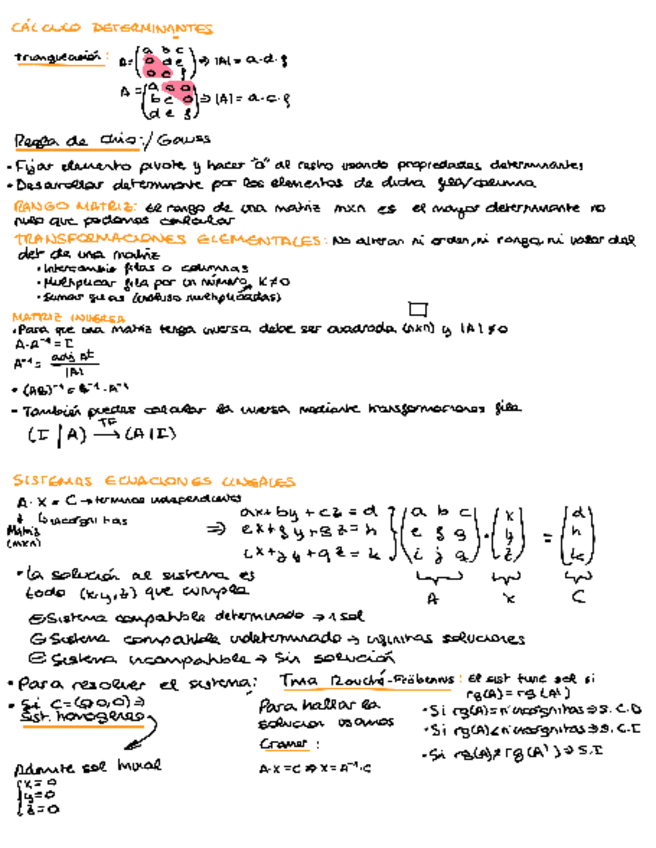 CÁLCULO DETERMINANTES
Triangulación: A = (a b c / 0 d e / 0 0 f) ⇒ |A| = a·d·f
A = (a 0 0 / b c 0 / d e f) ⇒ |A| = a·c·f
Regla de Chio:/Gauss
• Fijar elemento pivote y hacer "0" al resto usando propiedades determinantes
• Desarrollar determinante por los elementos de dicha fila/columna
RANGO MATRIZ: El rango de una matriz mxn es el mayor determinante no
nulo que podamos calcular
TRANSFORMACIONES ELEMENTALES: No alteran ni orden, ni rango, ni valor del
det de una matriz
• Intercambio filas o columnas
• Multiplicar fila por un número, K≠0
• Sumar filas (incluso multiplicadas)
MATRIZ INVERSA
• Para que una matriz tenga inversa, debe ser cuadrada (nxn) y |A| ≠ 0
A·A⁻¹ = I
A⁻¹ = adj Aᵗ / |A|
• (AB)⁻¹ = B⁻¹·A⁻¹
- También puedes calcular la inversa mediante transformaciones fila
(I | A) TF→ (A | I)
SISTEMAS ECUACIONES LINEALES
A·X = C → términos independientes
↳ incógnitas
Matriz
(mxn)
⇒ ax + by + cz = d
ex + fy + gz = h
ix + jy + qz = k
(a b c / e f g / i j q) · (x / y / z) = (d / h / k)
A X C
• La solución al sistema es
todo (x,y,z) que cumpla
Sistema compatible determinado → 1 sol
Sistema compatible indeterminado → infinitas soluciones
Sistema incompatible → Sin solución
• Para resolver el sistema: Tma Rouché-Fröbenius: El sist tiene sol si
rg(A) = rg(A')
• Si C = (0,0,0) ⇒
Sist. homogéneo
Admite sol trivial
{x = 0
y = 0
z = 0
Para hallar la
solución usamos
Cramer:
A·X = C ⇒ X = A⁻¹·C
• Si rg(A) = nº incógnitas ⇒ S.C.D
• Si rg(A) < nº incógnitas ⇒ S.C.I
• Si rg(A) ≠ rg(A') ⇒ S.I